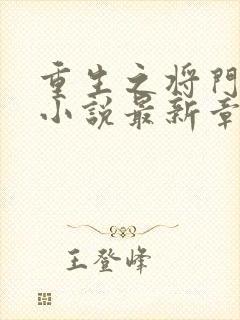 重生之将門
小說最新章
王登峰